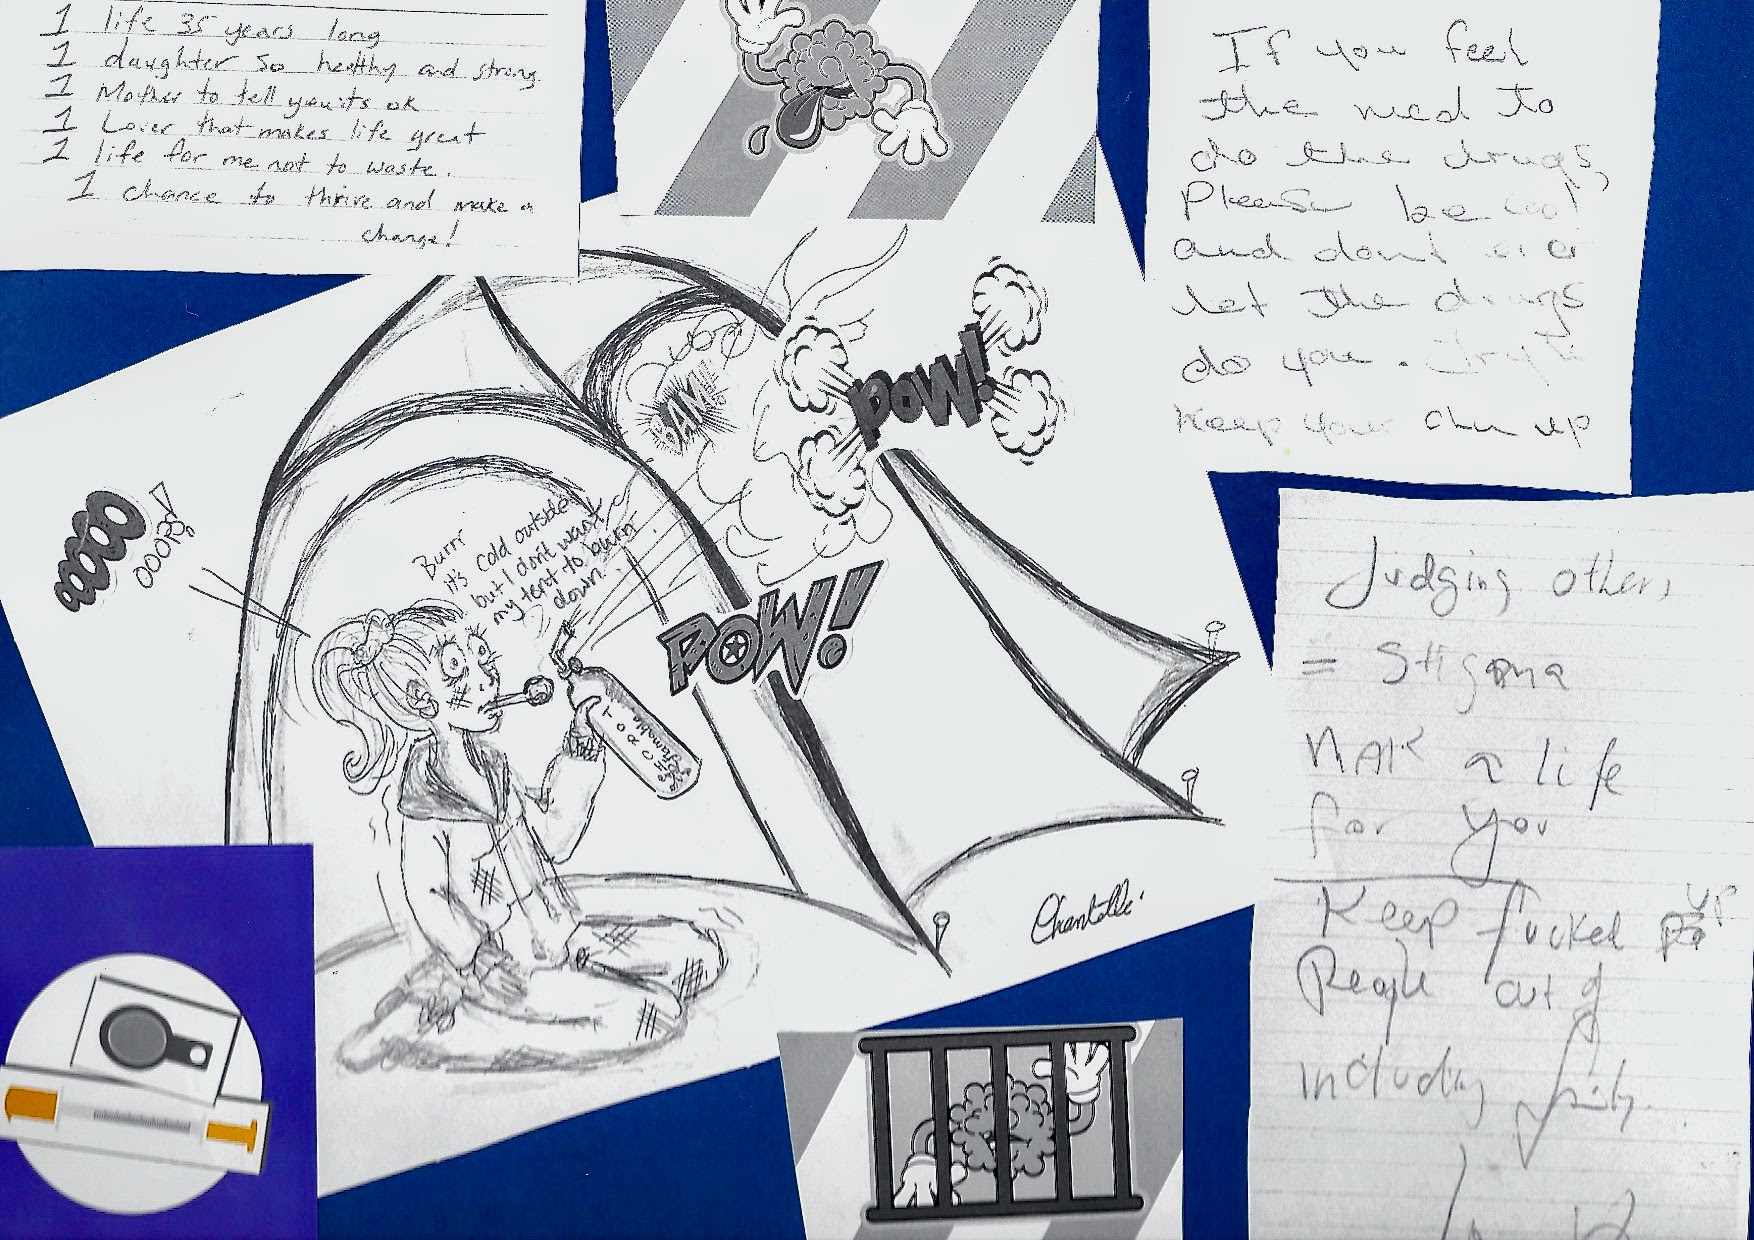 1 life 35 years long
1 daughter so healthy and strong
1 Mother to tell you its ok
1 Lover that makes life great
1 life for me not to waste.
1 chance to thrive and make a
change!
If you feel
the need to
do the drugs,
Please be cool
and dont ever
let the drugs
do you. Try to
keep your chin up
BAM!
POW!
OOOPS!
Burrr
it's cold outside
but I don't want
my tent to burn
down.
POW!
flamable
Chantelle
Judging others
= Stigma
MAK a life
for you
Keep fucked up
People out of
including family.